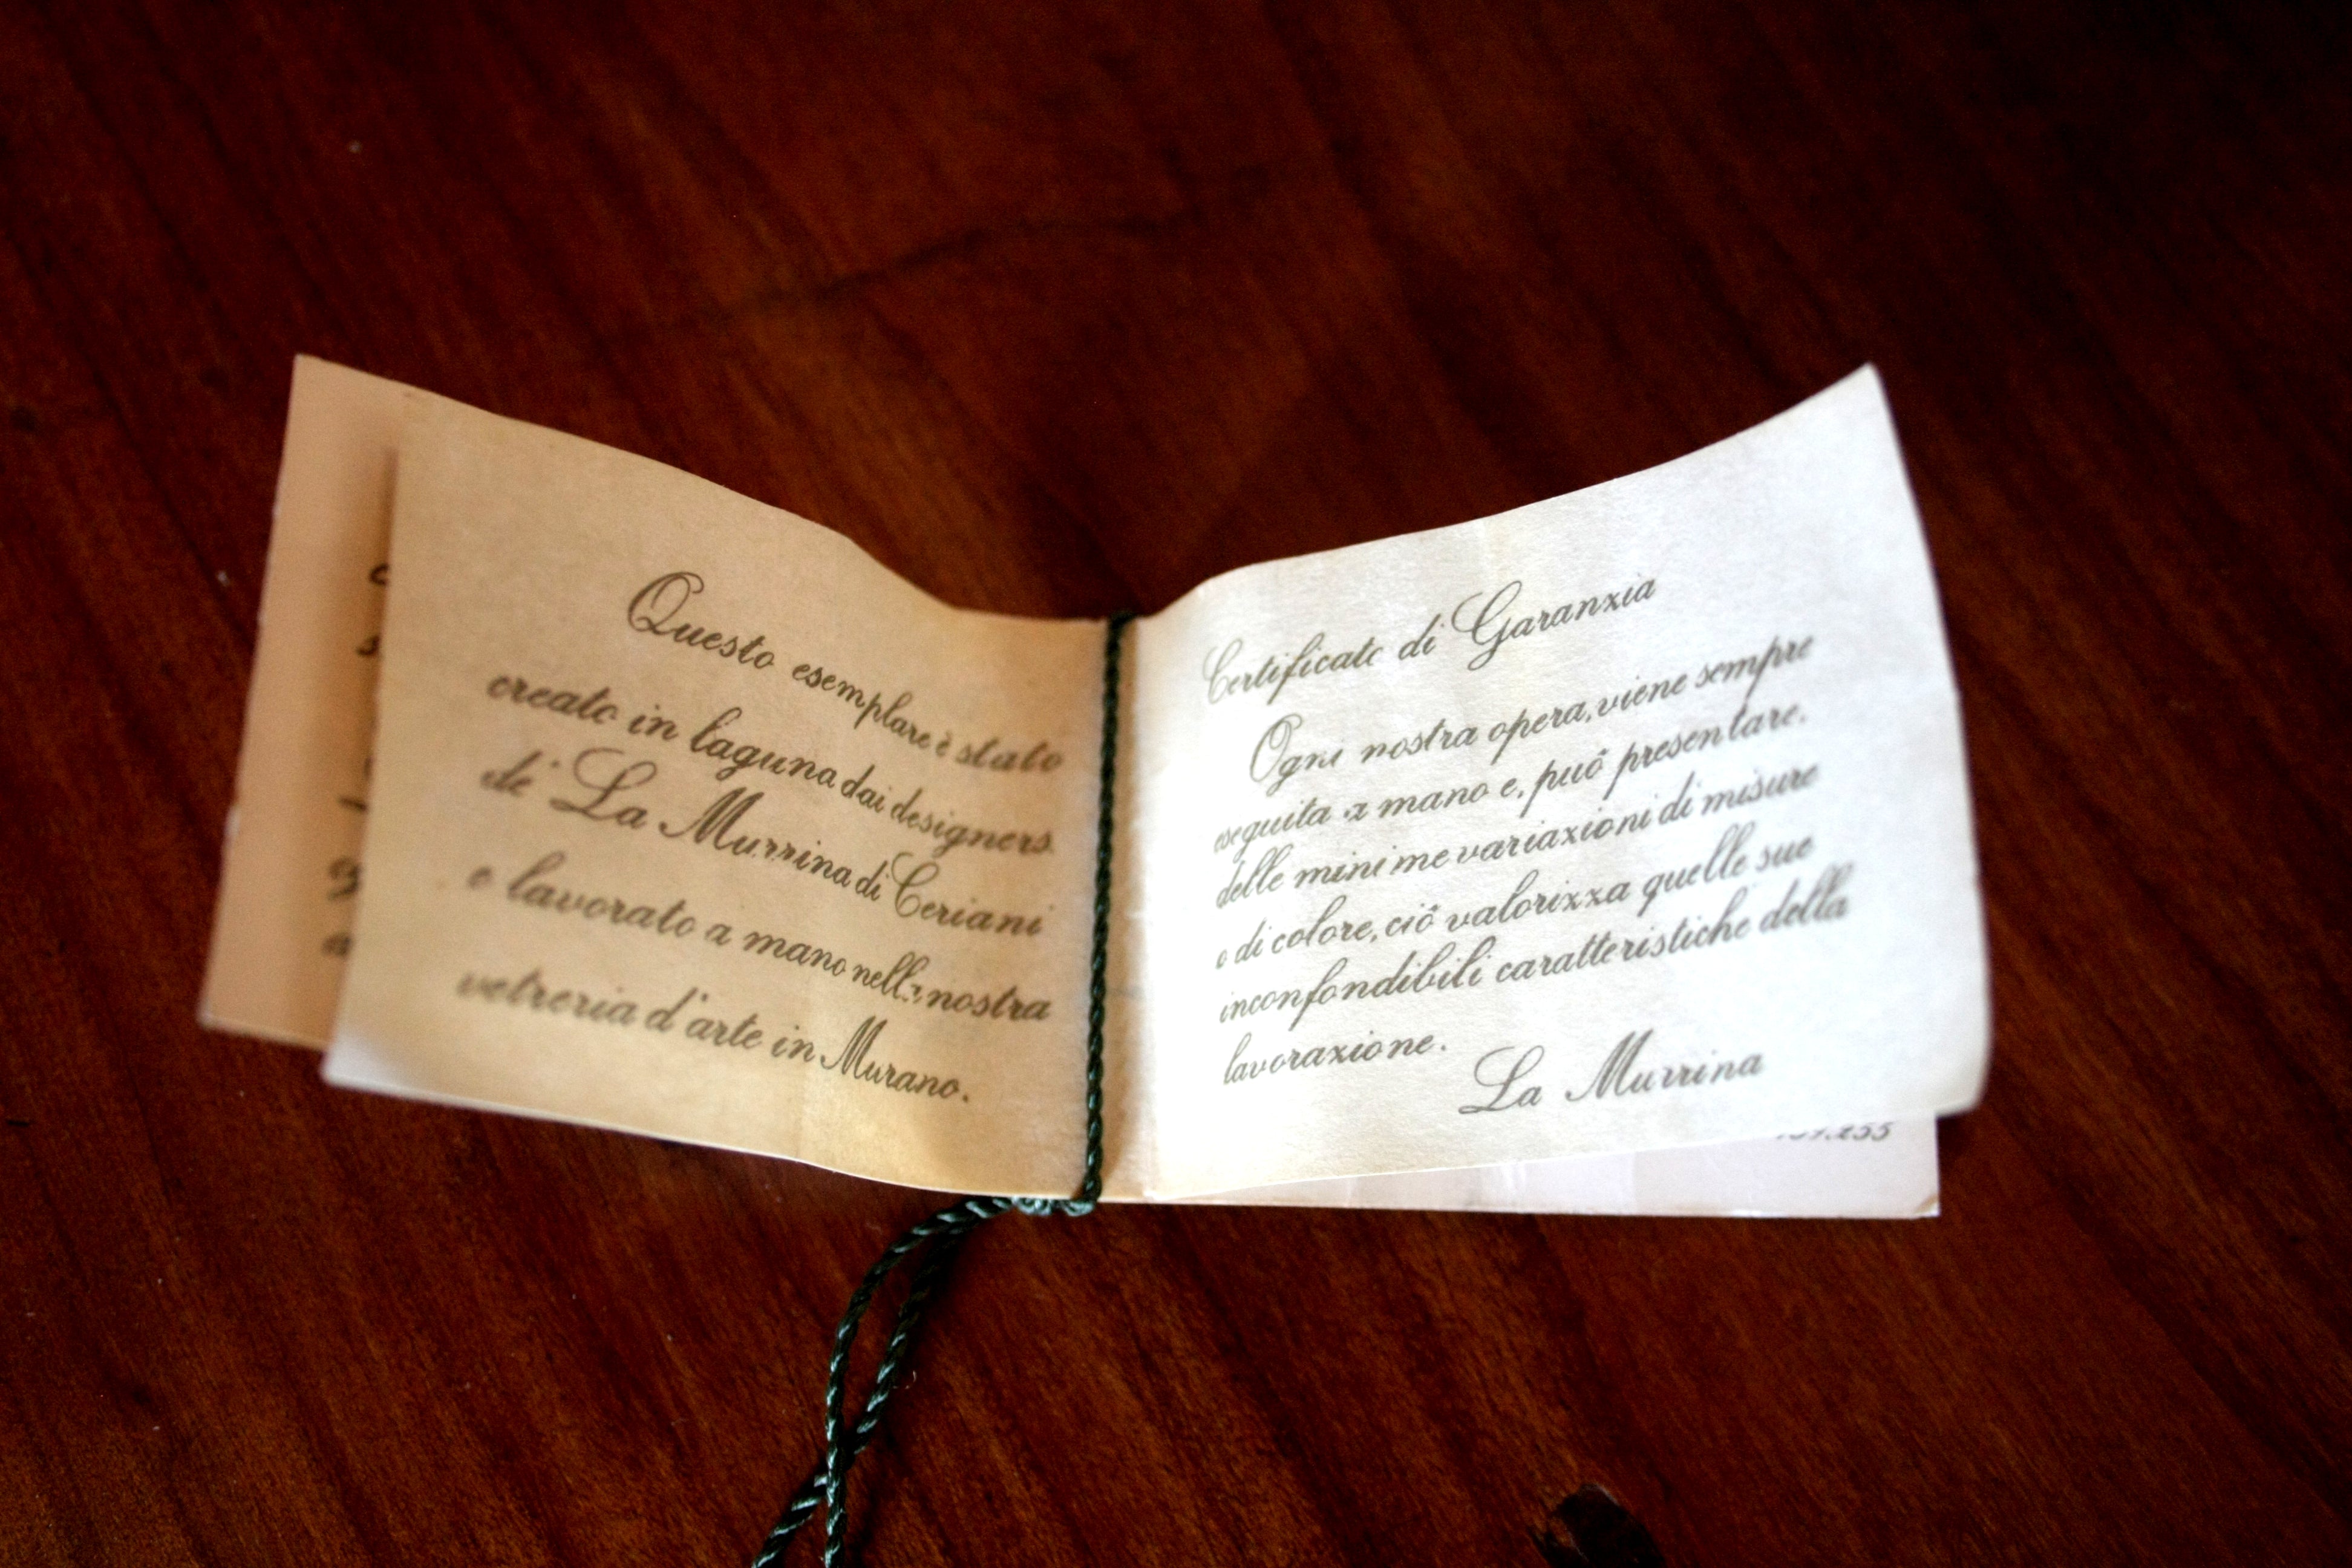 Questo esemplare è stato
creato in laguna dai designers
de' La Murrina di Ceriani
e lavorato a mano nella nostra
vetreria d'arte in Murano.
Certificato di Garanzia
Ogni nostra opera, viene sempre
eseguita a mano e, può presentare,
delle minime variazioni di misure
e di colore, ciò valorizza quelle sue
inconfondibili caratteristiche della
lavorazione.
La Murrina